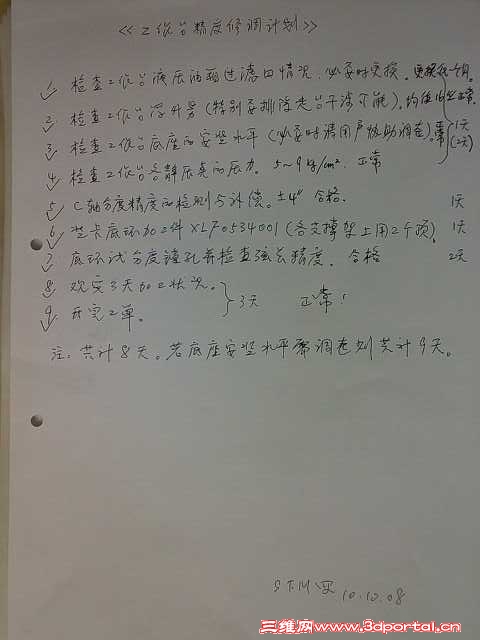 《工作台精度修调计划》
1. 检查工作台液压油箱过滤口情况,必要时更换。更换
2. 检查工作台浮升男(特别要排除走台干涉可能)。均值10丝正常
3. 检查工作台底座的安装水平(必要时请用户协助调查)。需 1天(2天)
4. 检查工作台各静压点的压力。5~9kg/cm². 正常
5. C轴分度精度的检测与补偿。±4" 合格. 1天
6. 装卡底环加工件XLF0534001(各支撑架上用2个顶). 1天
7. 底环试分度镗孔并检查弦长精度。合格 2天
8. 观察3天加工状况。
9. 开完工单。 } 3天 正常!
注:共计8天。若底座安装水平需调查则共计9天。
10.12.08
三维网www.3dportal.cn